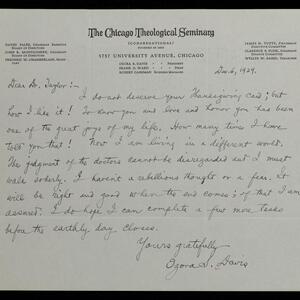 The Chicago Theological Seminary
(CONGREGATIONAL)
FOUNDED IN 1855
5757 UNIVERSITY AVENUE, CHICAGO
OZORA S. DAVIS PRESIDENT
FRANK G. WARD DEAN
ROBERT CASHMAN BUSINESS MANAGER
Dec. 6, 1929.
Dear Dr. Taylor:-
I do not deserve your Thanksgiving card; but
how I like it! To know you and love and honor you has been
one of the great joys of my life. How many times I have
told you that! Now I am living in a different world.
The judgment of the doctors cannot be disregarded and I must
walk soberly. I haven't a rebellious thought or a fear. It
will be right and good when the end comes; of that I am
assured. I do hope I can complete a few more tasks
before the earthly day closes.
Yours gratefully
Ozora S. Davis